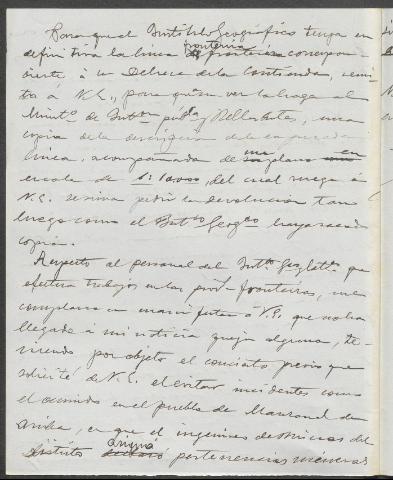 Para que el Instituto Geográfico tenga en
definitiva la línea fronteriza correspon-
diente, á su Dehesa de la Contienda, remi-
to á V.E., para que se haga al
Minist.º de Inst.on púb.ca y Bellas Artes, una
copia de la descripción de la expresada
línea, acompañada de un plano en
escala de 1:10.000, del cual ruego á
V.E. se sirva pedir la devolución tan
luego como el Inst.to Geog.co haya sacado
copia.
Respecto al personal del Inst.to Geog. que
efectúa trabajos en las prov.s fronterizas, me
complazco en manifestar á V.E. que no ha
llegado á mi noticia queja alguna, te-
niendo por objeto el concierto previo que
solicité de V.E. el evitar incidentes como
el ocurrido en el pueblo de Manzanal de
Arriba, en que el ingeniero de Minas del
distrito asignó pertenencias mineras